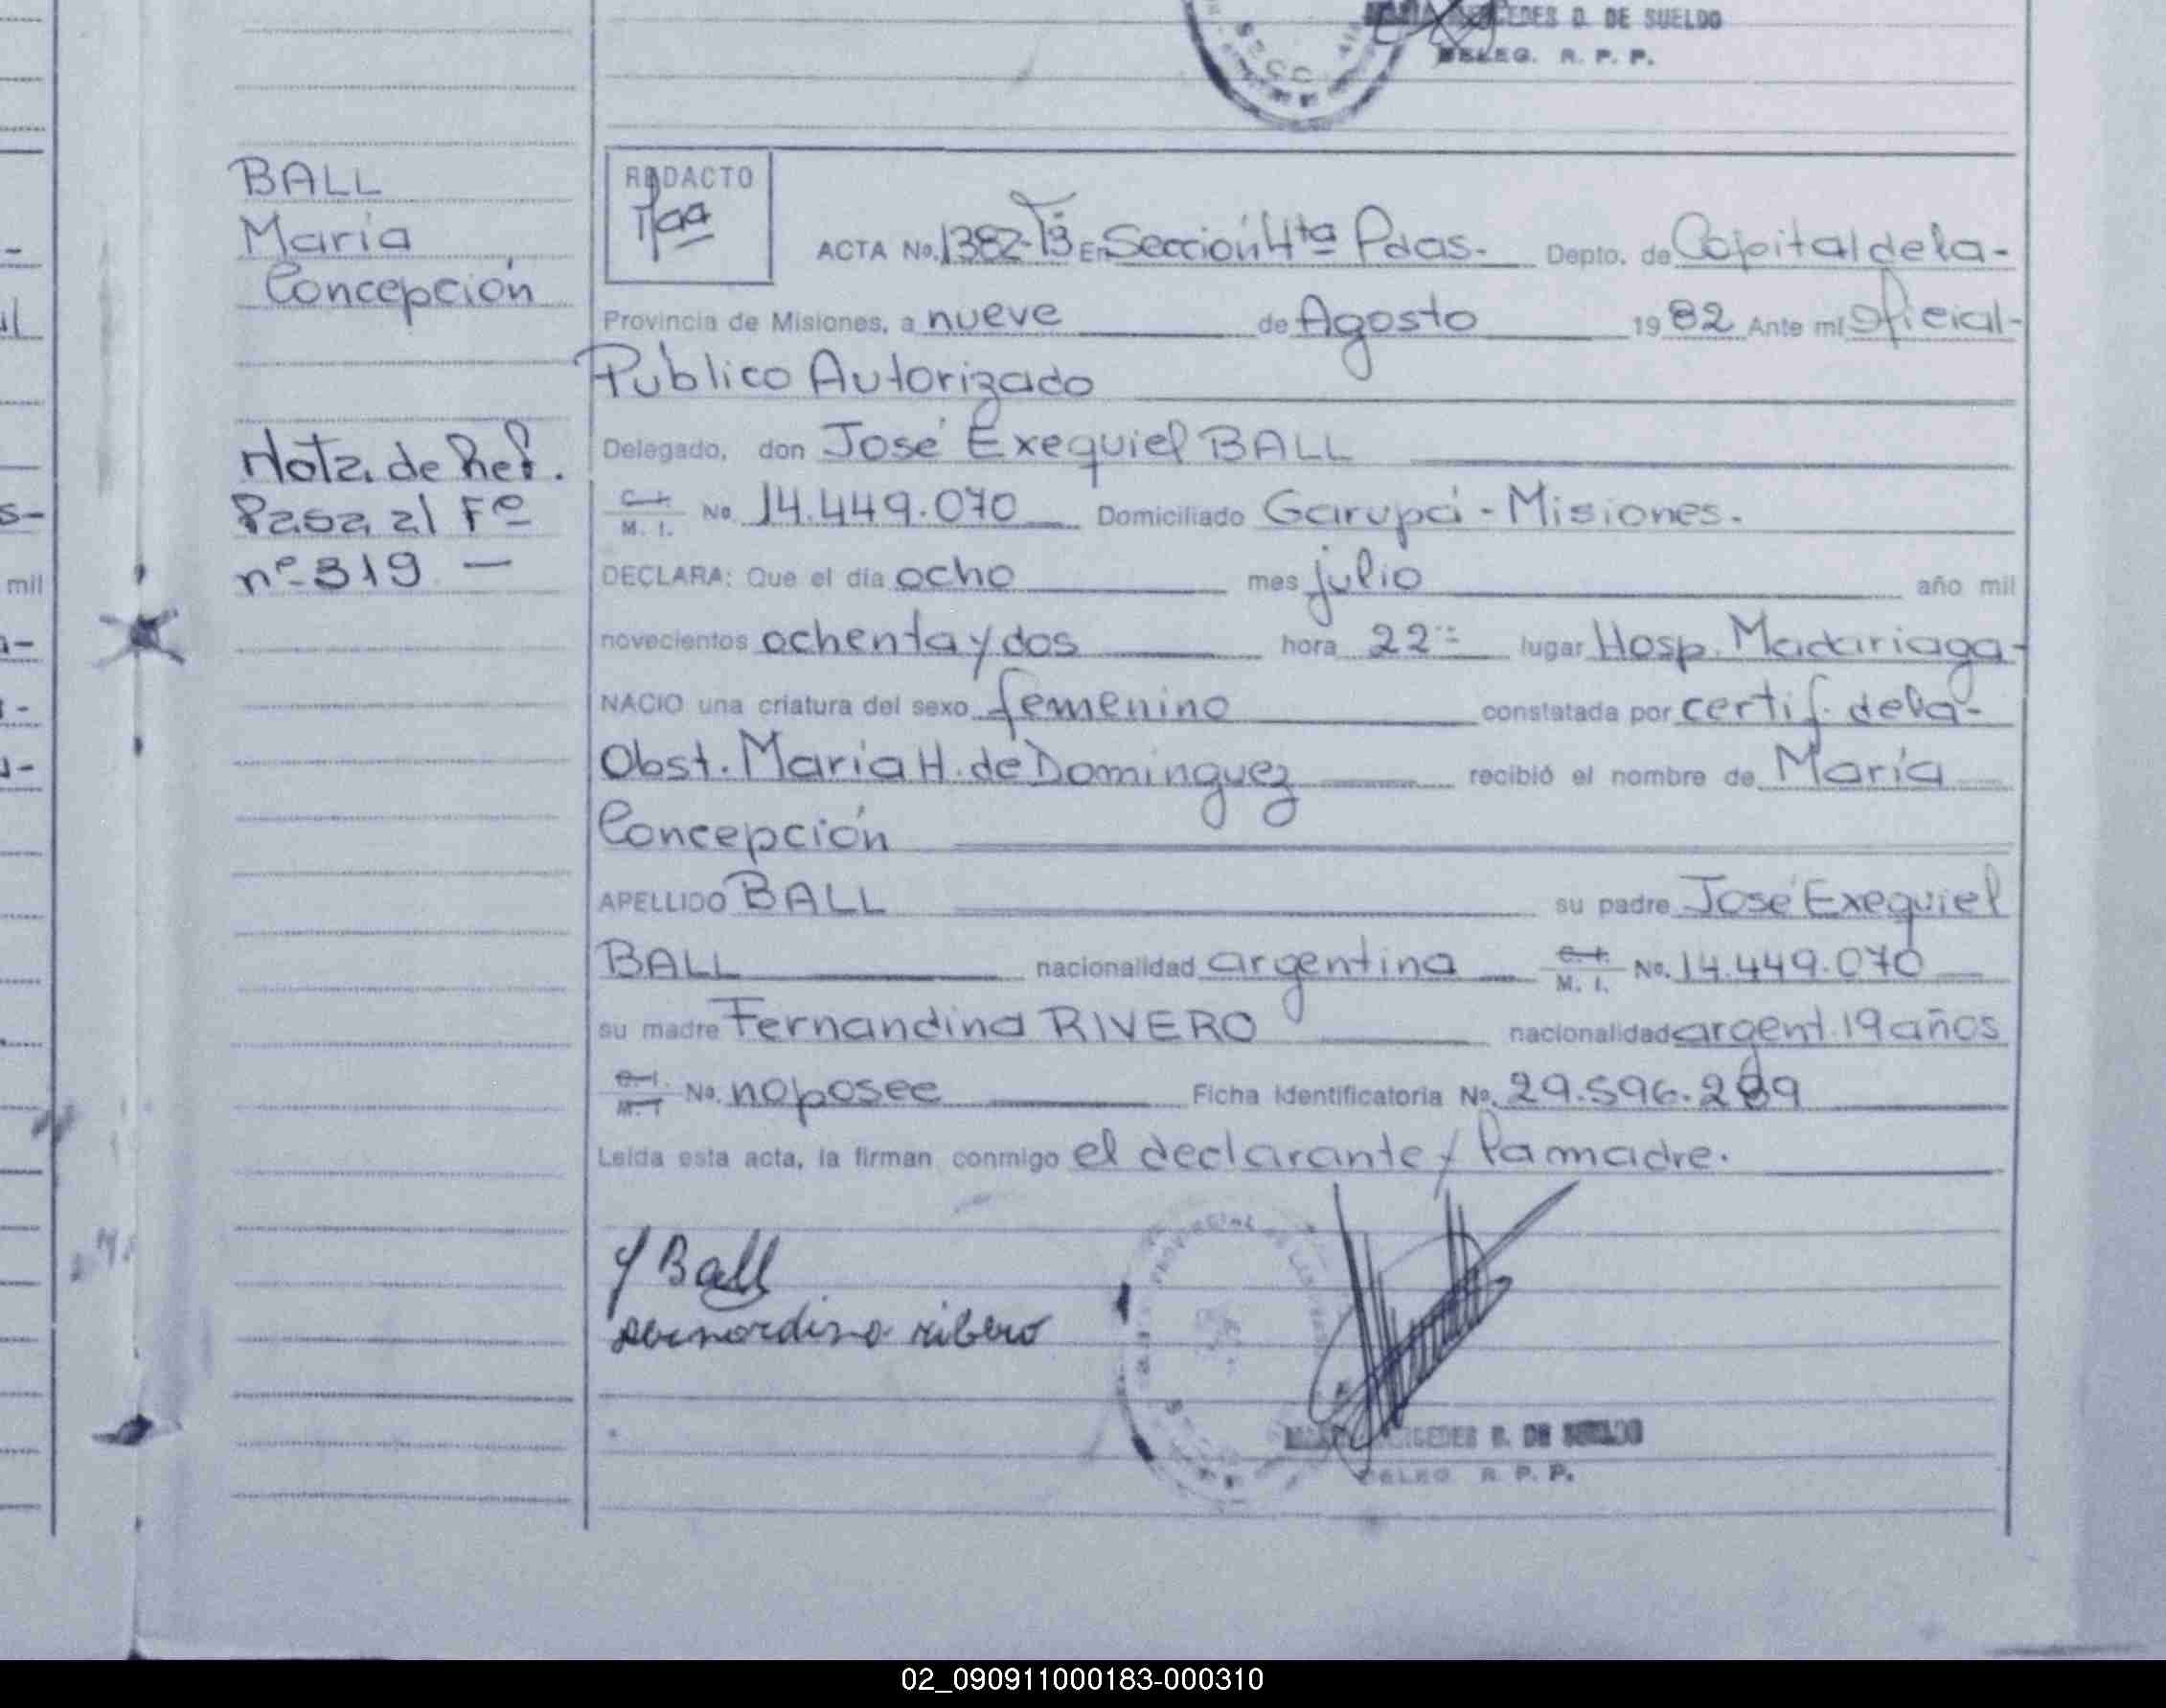 MARIA MERCEDES D. DE SUELDO
DELEG. R. P. P.
SECC
BALL
María
Concepción
Nota de Ref.
Pasa al Fº
nº 319 —
REDACTO
ACTA No. 1382-Tº3 En Sección 4ta Pdas. Depto. de Capital de la-
Provincia de Misiones, a nueve de Agosto 1982 Ante mi Oficial-
Público Autorizado
Delegado, don José Exequiel BALL
C. I. M. I. No. 14.449.070 Domiciliado Garupá - Misiones.
DECLARA: Que el día ocho mes julio año mil
novecientos ochenta y dos hora 22 lugar Hosp. Madariaga-
NACIO una criatura del sexo femenino constatada por certif. de la-
Obst. María H. de Dominguez recibió el nombre de María
Concepción
APELLIDO BALL su padre José Exequiel
BALL nacionalidad argentina C. I. M. I. No. 14.449.070
su madre Fernandina RIVERO nacionalidad argent. 19 años
C. I. M. I No. no posee Ficha Identificatoria No. 29.596.289
Leída esta acta, la firman conmigo el declarante y la madre.
J Ball
ribero
MERCEDES D. DE SUELDO
DELEG R. P. P.
mil
02_090911000183-000310